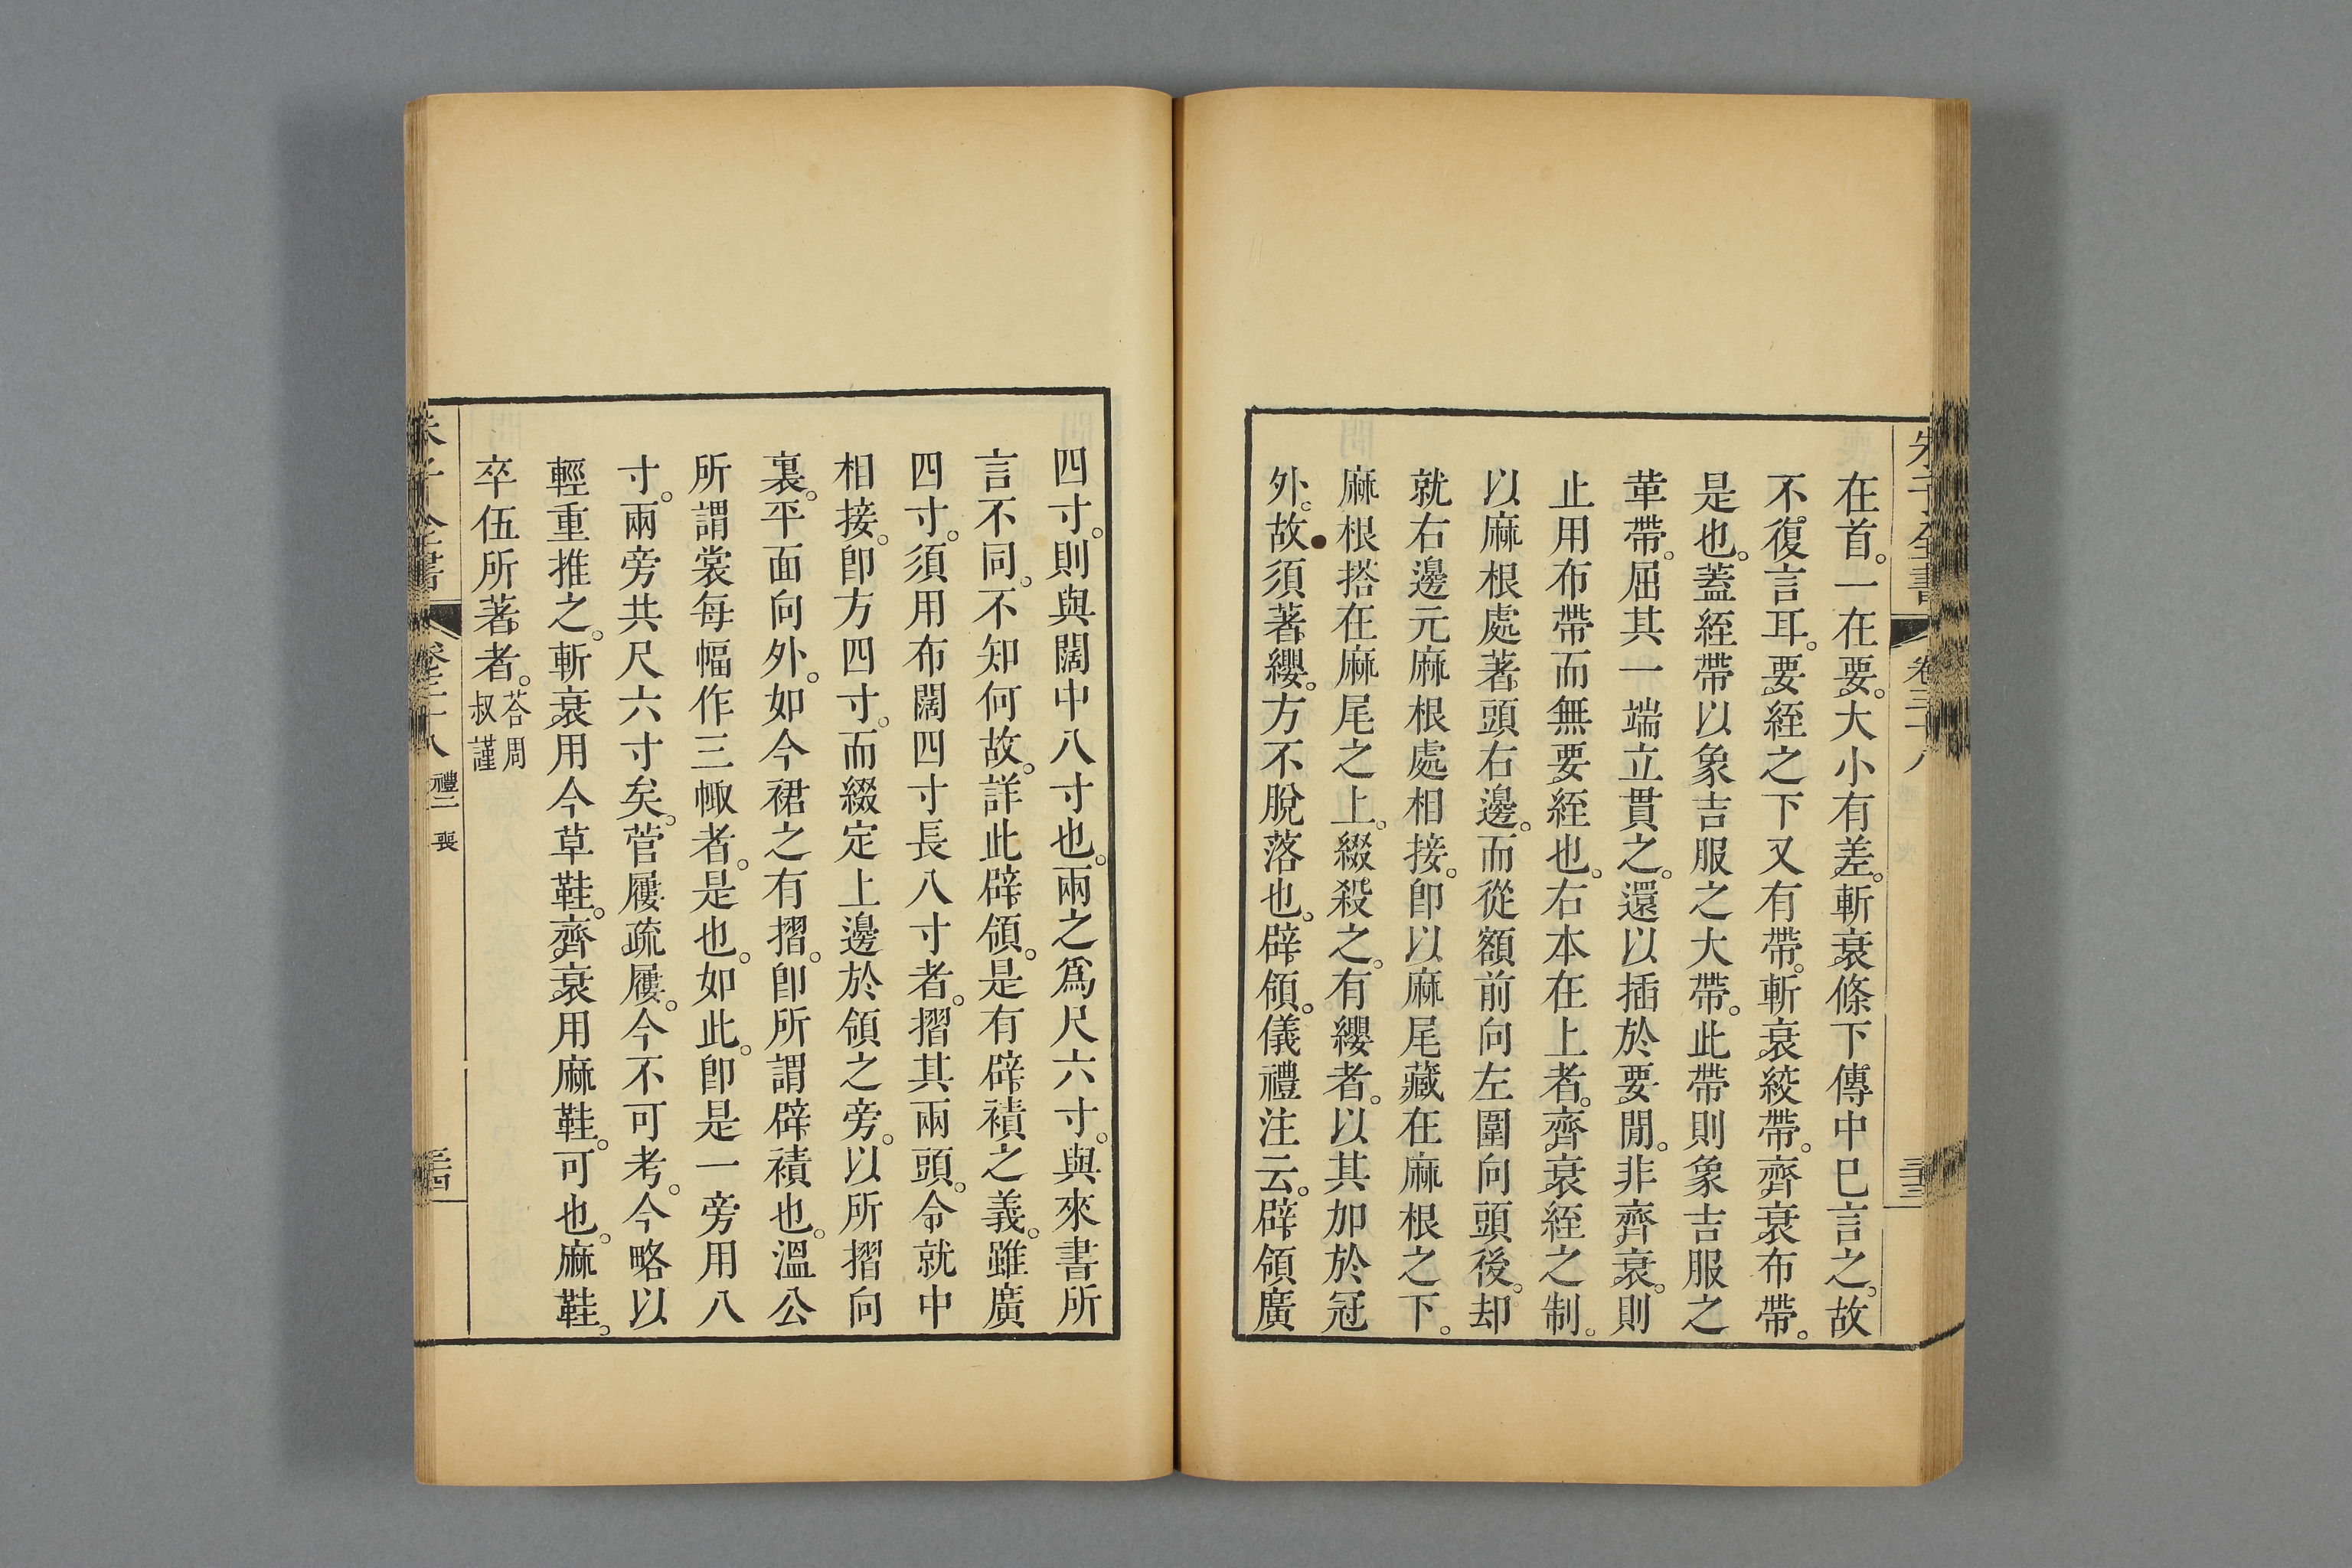 朱子全書 卷三十八 三十三
在首。一在要。大小有差。斬衰條下傳中已言之。故
不復言耳。要絰之下又有帶。斬衰絞帶。齊衰布帶。
是也。蓋絰帶以象吉服之大帶。此帶則象吉服之
革帶。屈其一端立貫之。還以插於要閒。非齊衰。則
止用布帶而無要絰也。右本在上者。齊衰絰之制。
以麻根處著頭右邊。而從額前向左圍向頭後。却
就右邊元麻根處相接。卽以麻尾藏在麻根之下。
麻根搭在麻尾之上。綴殺之。有纓者。以其加於冠
外。故須著纓。方不脫落也。辟領。儀禮注云。辟領廣
四寸。則與闊中八寸也。兩之爲尺六寸。與來書所
言不同。不知何故。詳此辟領。是有辟積之義。雖廣
四寸。須用布闊四寸長八寸者。摺其兩頭。令就中
相接。卽方四寸。而綴定上邊於領之旁。以所摺向
裏。平面向外。如今裙之有摺。卽所謂辟積也。溫公
所謂裳每幅作三㡇者。是也。如此。卽是一旁用八
寸。兩旁共尺六寸矣。菅屨疏屨。今不可考。今略以
輕重推之。斬衰用今草鞋。齊衰用麻鞋。可也。麻鞋。
卒伍所著者。荅周叔謹
朱子全書 卷三十八 禮二 喪 三十四